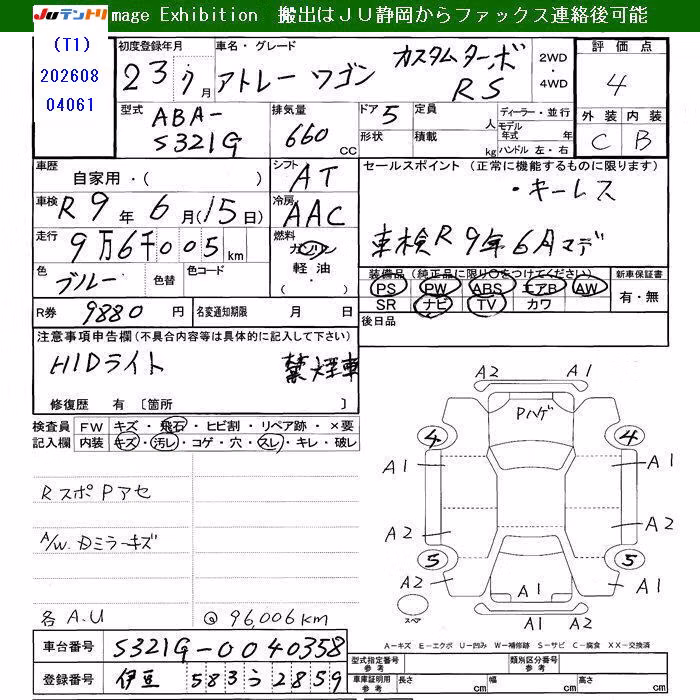 JUテントリ mage Exhibition 搬出はＪＵ静岡からファックス連絡後可能
(T1)
202608
04061
初度登録年月 車名・グレード 評価点
23 7月 アトレー ワゴン カスタムターボ RS 2WD・4WD 4
型式 ABA-S321G 排気量 660 CC ドア 5 定員 人 ディーラー・並行
形状 積載 kg モデル年式 年式 ハンドル 左・右
外装 内装
C B
車歴 自家用・( ) シフト AT
セールスポイント (正常に機能するものに限ります)
・キーレス
車検 R9年6月(15日) 冷房 AAC
車検R9年6月マデ
走行 9万6千005km 燃料 ガソリン 軽油・( )
色 ブルー 色替 色コード
装備品 (純正品に限り○をつけてください) 新車保証書
PS PW ABS エアB AW 有・無
SR ナビ TV カワ
R券 9880円 名変通知期限 月 日
後日品
注意事項申告欄(不具合内容等は具体的に記入して下さい)
HIDライト 禁煙車
修復歴 有 〔箇所 〕
検査員記入欄 FW キズ・飛石・ヒビ割・リペア跡・×要
内装 キズ・汚レ・コゲ・穴・スレ・キレ・破レ
RスポPアセ
A/W.Dミラーキズ
各A.U @96,006km
A2 A1
Pハゲ
4 4
A1 A1
A2 A2
5 5
A2 A1 A1
スペア A2 A1
A－キズ E－エクボ U－凹み W－補修跡 S－サビ C－腐食 XX－交換済
車台番号 S321G-0040358
型式指定番号 参考 類別区分番号 参考
登録番号 伊豆 583う2859
車庫証明用 参考 長さ cm 幅 cm 高さ cm